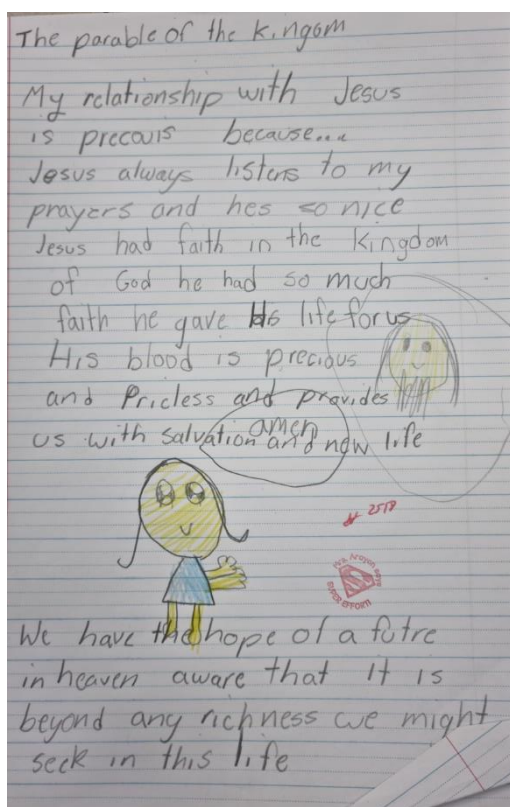 The parable of the kingom
My relationship with Jesus
is precouis because...
Jesus always listens to my
prayers and hes so nice
Jesus had faith in the kingdom
of God he had so much
faith he gave His life for us
His blood is precious
and Pricless and provides
us with salvation and new life
amen
25/8
SUPER EFFORT!
We have the hope of a futre
in heaven aware that it is
beyond any richness we might
seek in this life